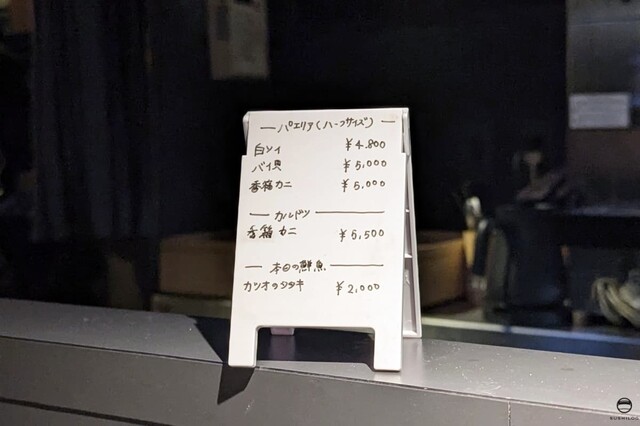 パエリア(ハーフサイズ)
白ソイ ¥4.800
バイ貝 ¥5,000
香箱カニ ¥5,000
カルドソ
香箱カニ ¥5,500
本日の鮮魚
カツオのタタキ ¥2,000
SUSHILOG